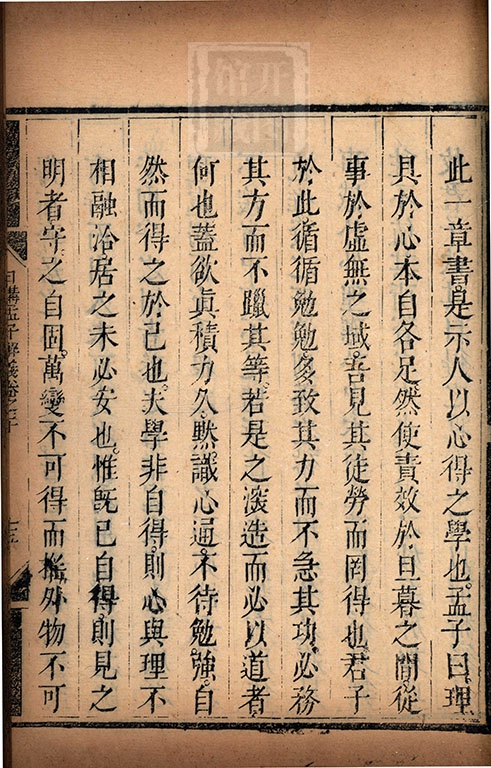 此一章書是示人以心得之學也孟子曰理
具於心本自各足然使責效於旦暮之間從
事於虛無之域吾見其徒勞而罔得也君子
於此循循勉勉多致其力而不急其功必務
其方而不躐其等若是之深造而必以道者
何也蓋欲眞積力久默識心通不待勉強自
然而得之於己也夫學非自得則心與理不
相融洽居之未必安也惟旣已自得則見之
明者守之自固萬變不可得而搖外物不可
日講孟子解義卷